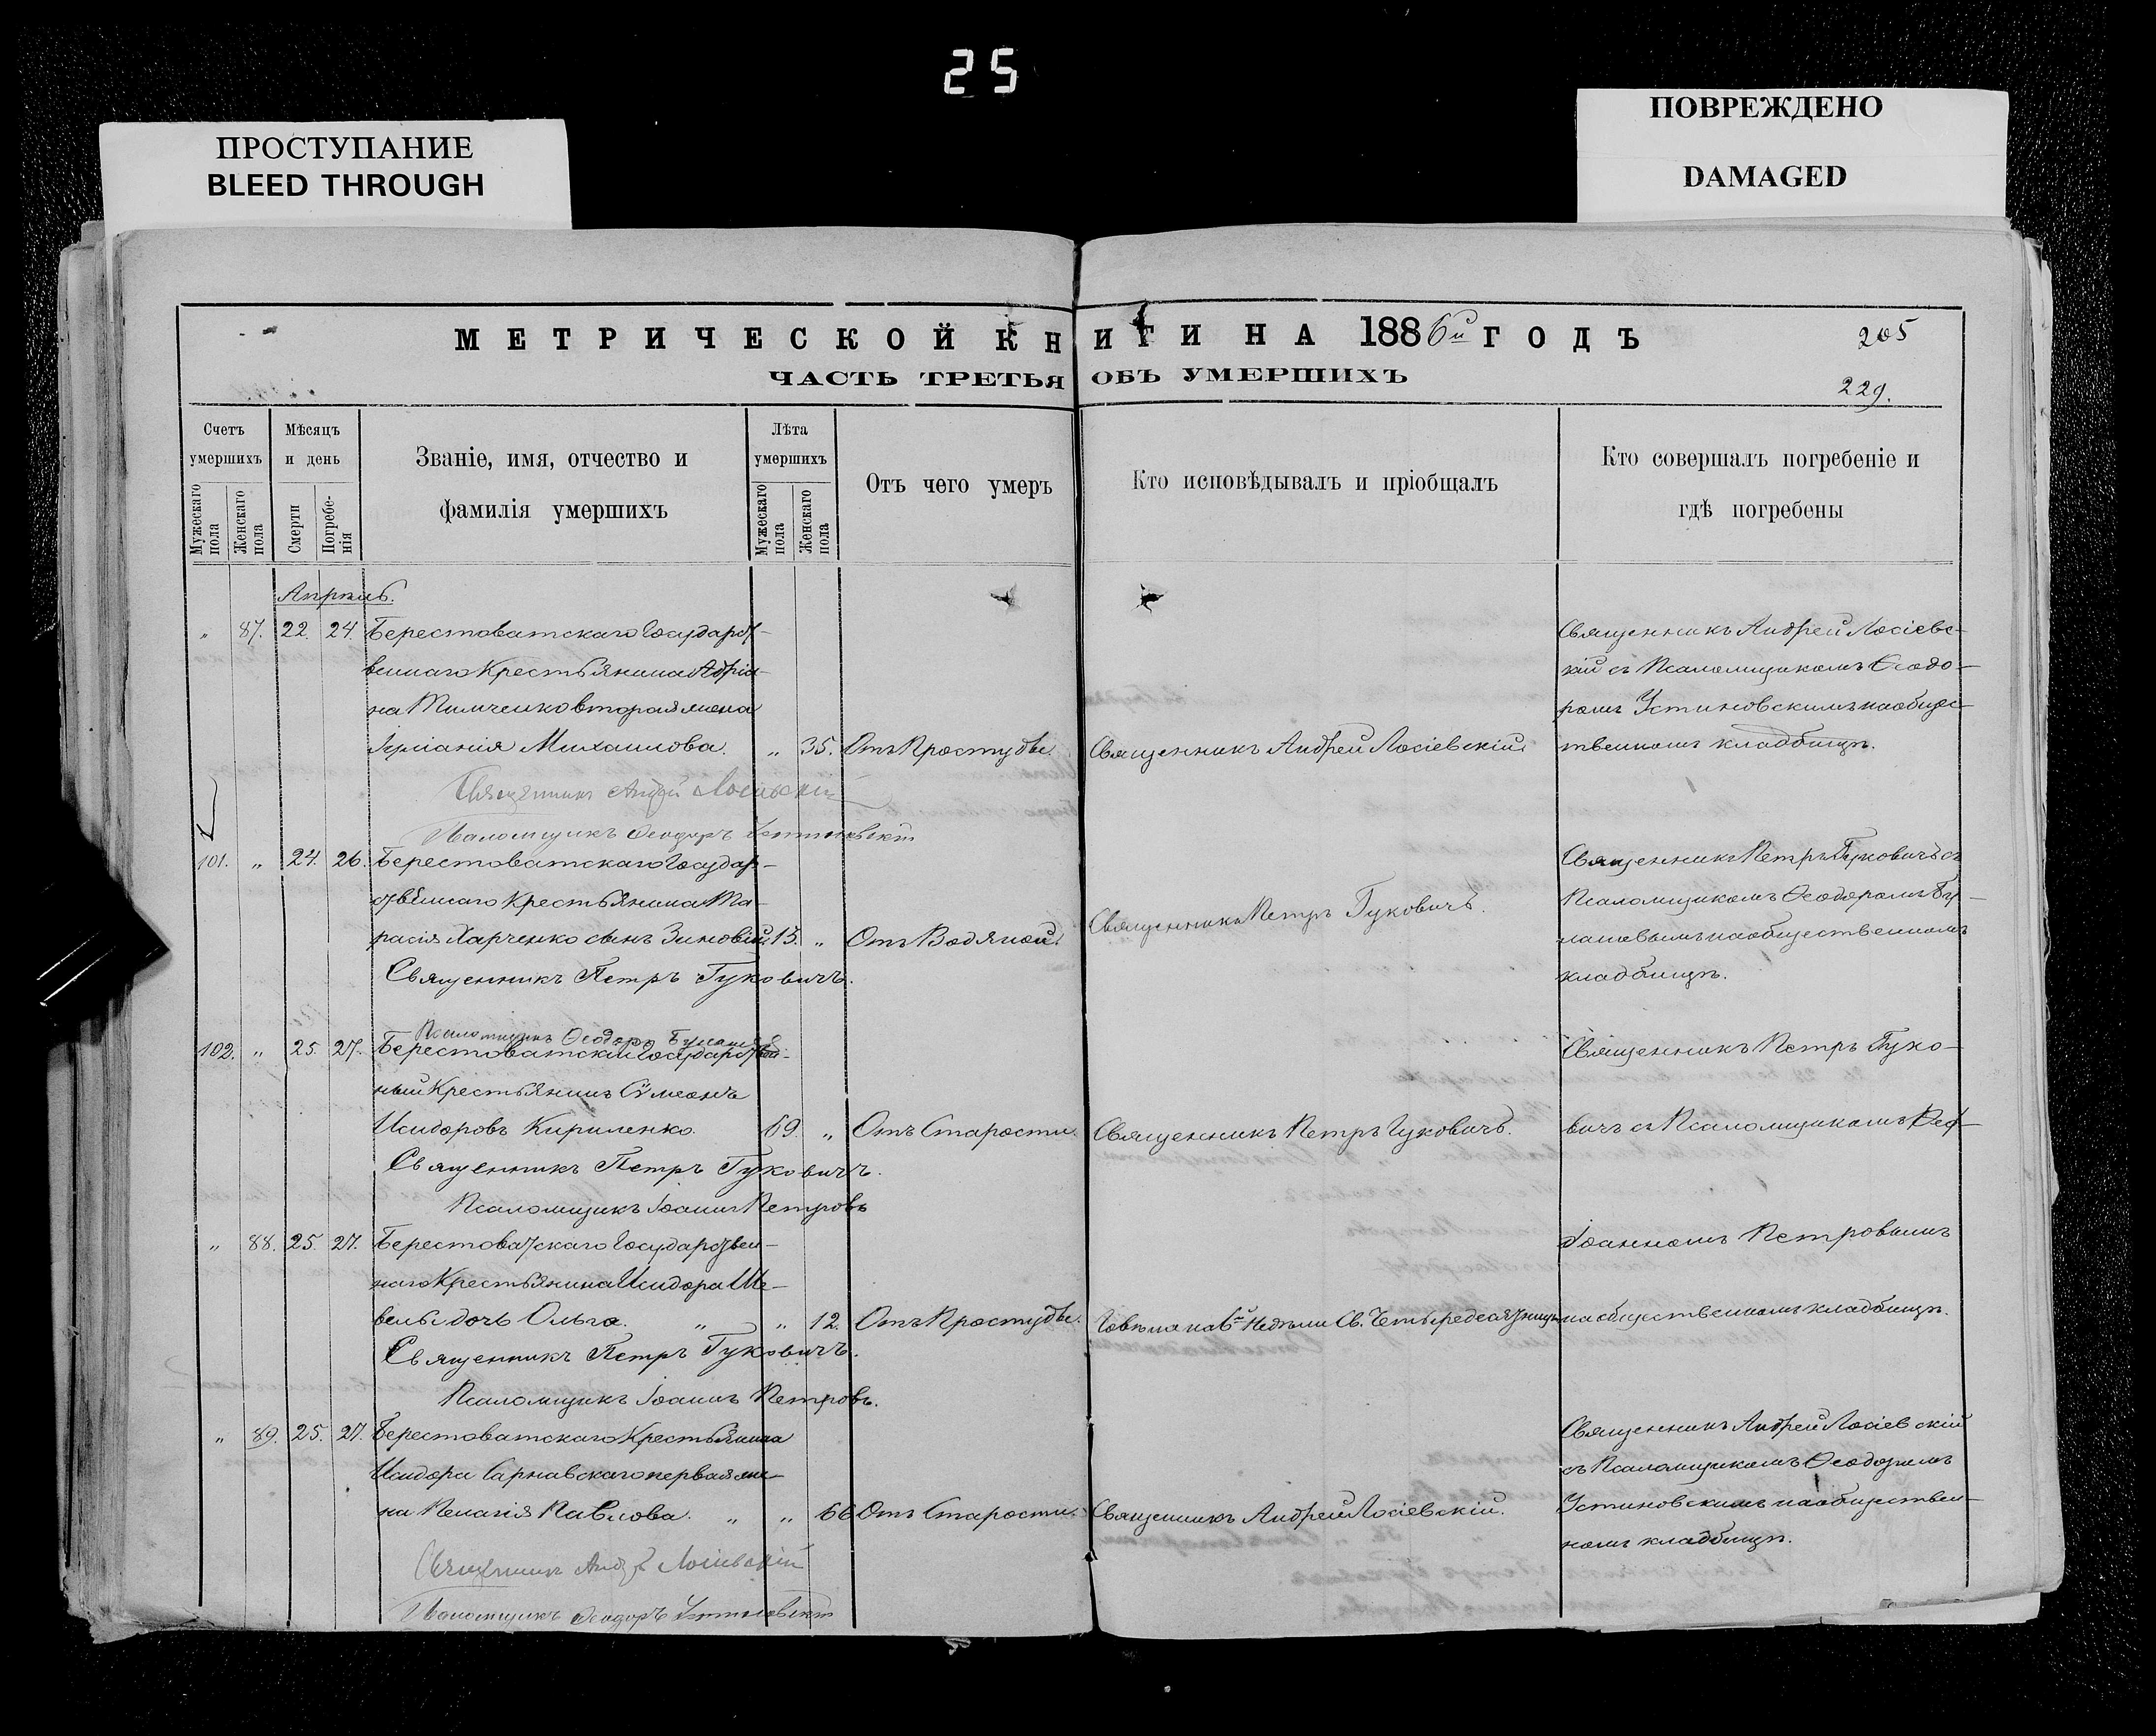 25
ПРОСТУПАНИЕ
BLEED THROUGH
ПОВРЕЖДЕНО
DAMAGED
МЕТРИЧЕСКОЙ КНИГИ НА 1886й ГОДЪ
205
ЧАСТЬ ТРЕТЬЯ ОБЪ УМЕРШИХЪ
229.
Счетъ умершихъ
Мужескаго пола
Женскаго пола
Мѣсяцъ и день
Смерти
Погребенія
Званіе, имя, отчество и
фамилія умершихъ
Лѣта умершихъ
Мужескаго пола
Женскаго пола
Отъ чего умеръ
Кто исповѣдывалъ и пріобщалъ
Кто совершалъ погребеніе и
гдѣ погребены
Апрѣль.
„ 87. 22. 24. Берестоватскаго Государст-
веннаго Крестьянина Адріа-
на Тимченко вторая жена
Михаилова. „ 35. Отъ Простуды Священникъ Андрей Лосіевскій
Священникъ Андрей Лосіевс-
кій съ Псаломщикомъ Ѳеодо-
ромъ Устиновскимъ на общес-
твенномъ кладбищѣ.
Священникъ Андрей Лосіевскій
Псаломщикъ Ѳеодоръ Устиновскій
101. „ 24. 26. Берестоватскаго Государ-
ственнаго Крестьянина Та-
расія Харченко сынъ Зиновій 13. „ Отъ Водяной Священникъ Петръ Гуковичъ.
Священникъ Петръ Гуковичъ съ
Псаломщикомъ Ѳеодоромъ
на общественномъ
кладбищѣ.
Священникъ Петръ Гуковичъ.
Псаломщикъ Ѳеодоръ
102. „ 25. 27. Берестоватскій Государствен-
ный Крестьянинъ Сѵмеонъ
Исидоровъ Кириленко. 69. „ Отъ Старости Священникъ Петръ Гуковичъ.
Священникъ Петръ Гуко-
вичъ съ Псаломщикомъ
Священникъ Петръ Гуковичъ.
Псаломщикъ Іоаннъ Петровъ
„ 88. 25. 27. Берестоватскаго Государствен-
наго Крестьянина Исидора Ше-
вель дочь Ольга. „ „ 12. Отъ Простуды. Говѣла на 6й Недѣли Св. Четыредесятницы
Іоанномъ Петровымъ
на общественномъ кладбищѣ.
Священникъ Петръ Гуковичъ.
Псаломщикъ Іоаннъ Петровъ.
„ 89. 25. 27. Берестоватскаго Крестьянина
Исидора Сарнавскаго первая же-
на Пелагія Павлова. „ „ 66 Отъ Старости. Священникъ Андрей Лосіевскій.
Священникъ Андрей Лосіевскій
съ Псаломщикомъ Ѳеодоромъ
Устиновскимъ на обществен-
номъ кладбищѣ.
Священникъ Андрей Лосіевскій
Псаломщикъ Ѳеодоръ Устиновскій